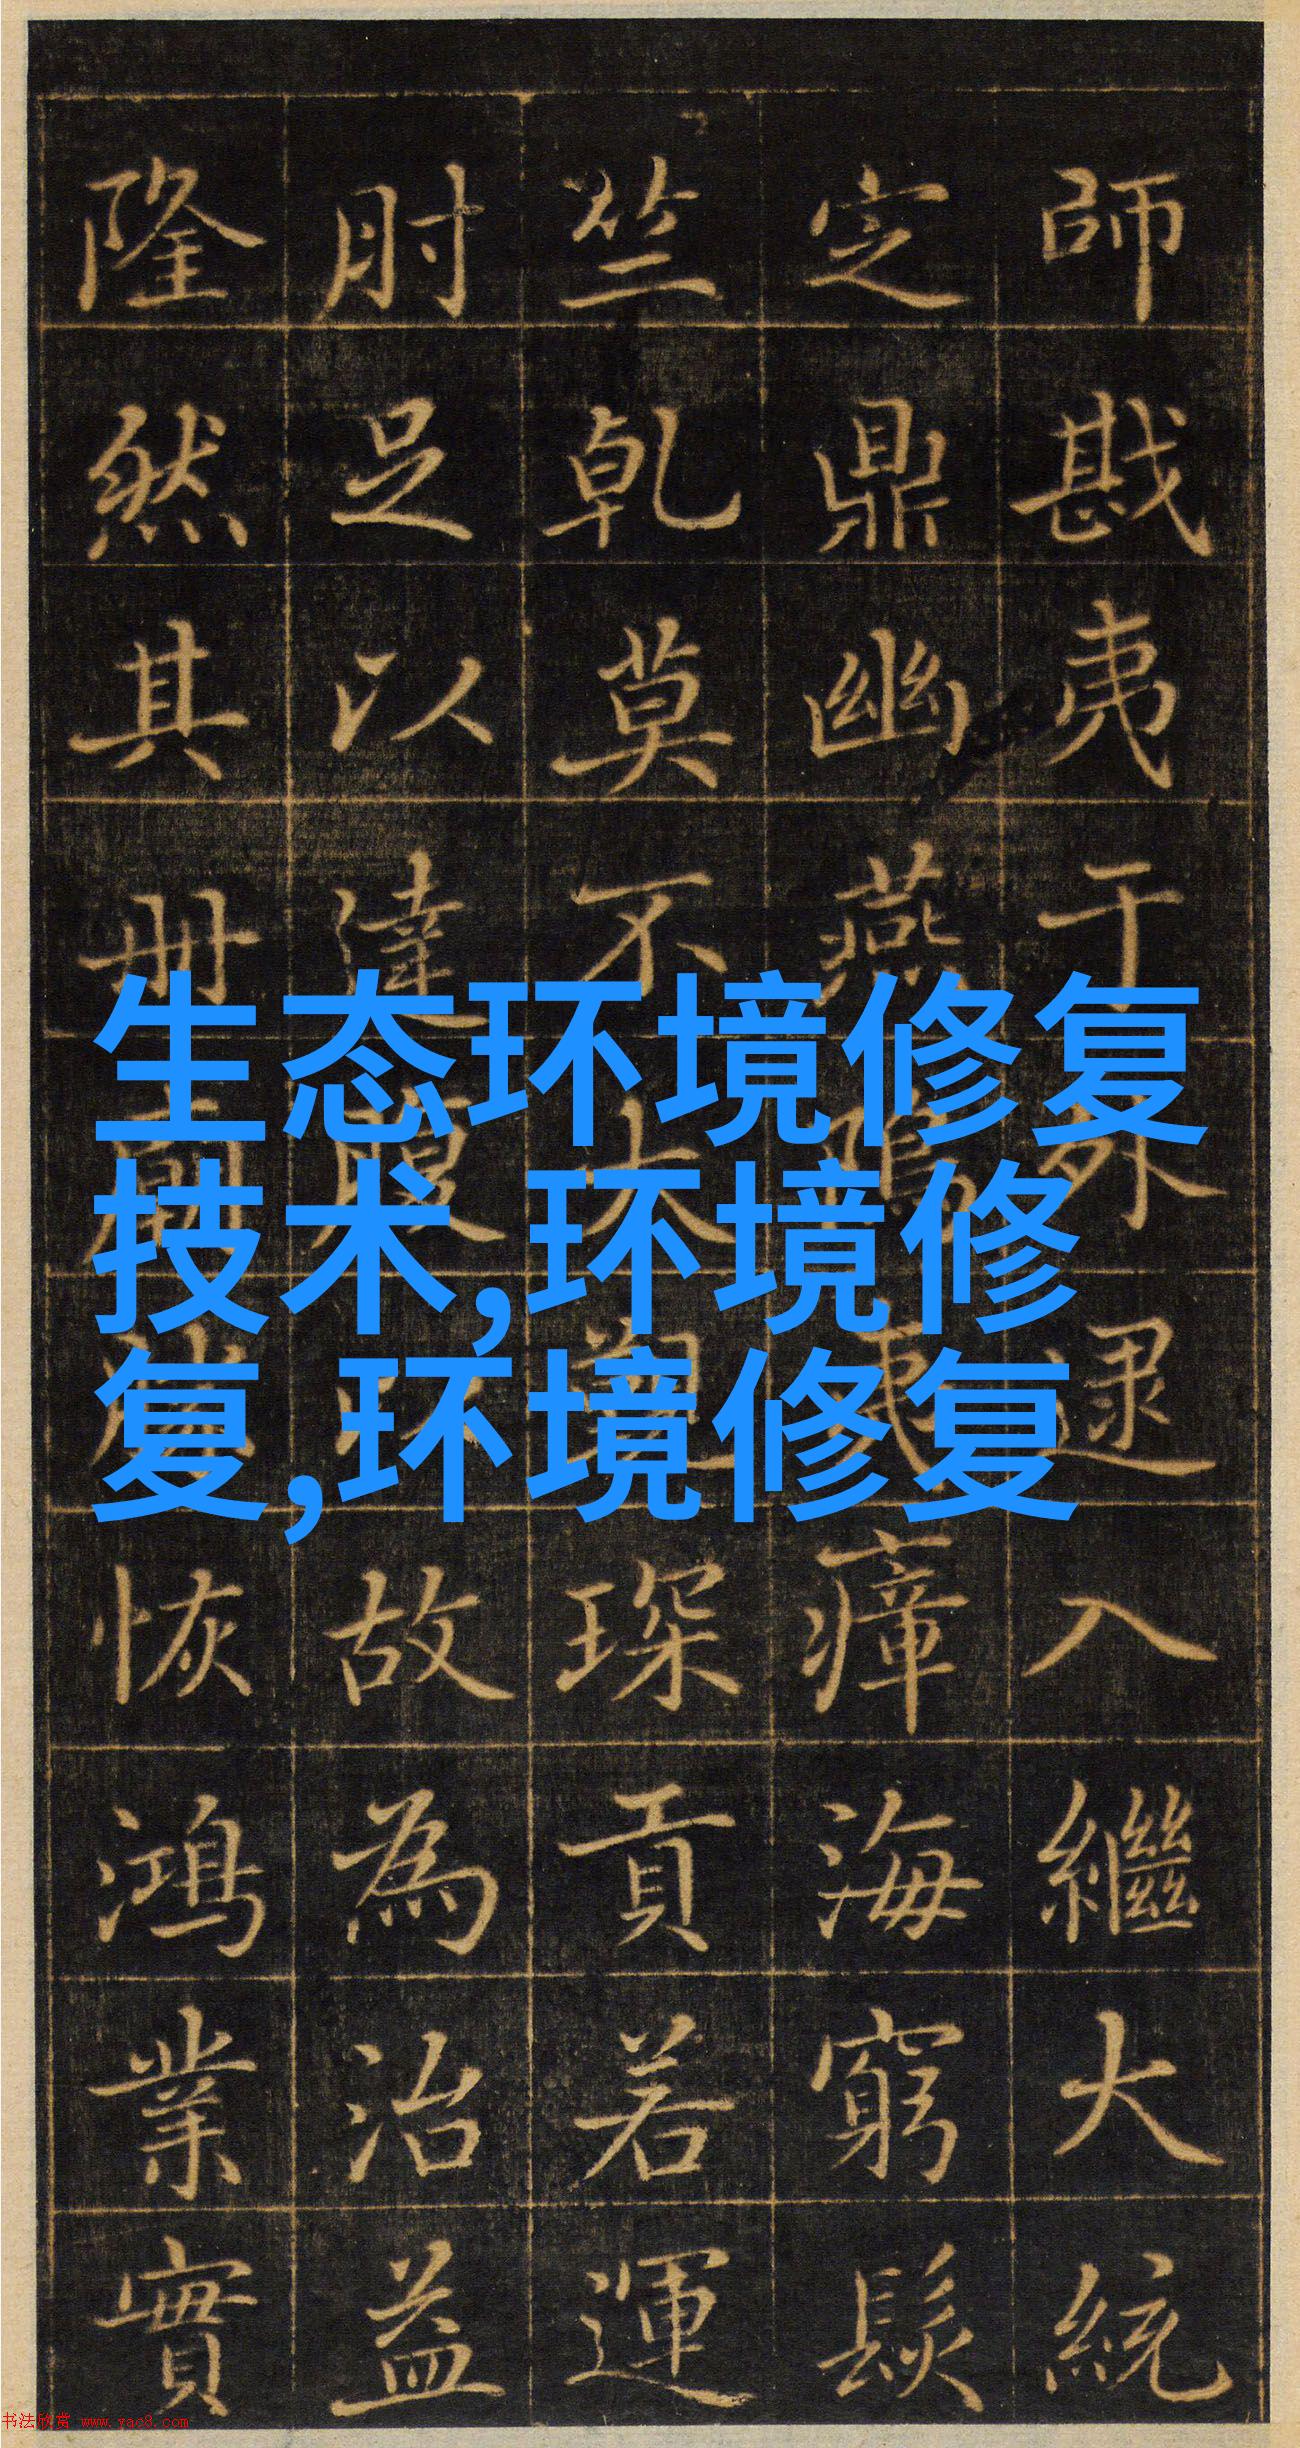 生态环境修复
技术,环境修
复,环境修复
師戡夷于外逮入繼大統
定鼎幽燕夷瘴海窮髮
竺乾莫不琛貢若運
肘足以達腹以故為治益
隆然其冊廟恢鴻業實
书法欣赏 www.yac8.com